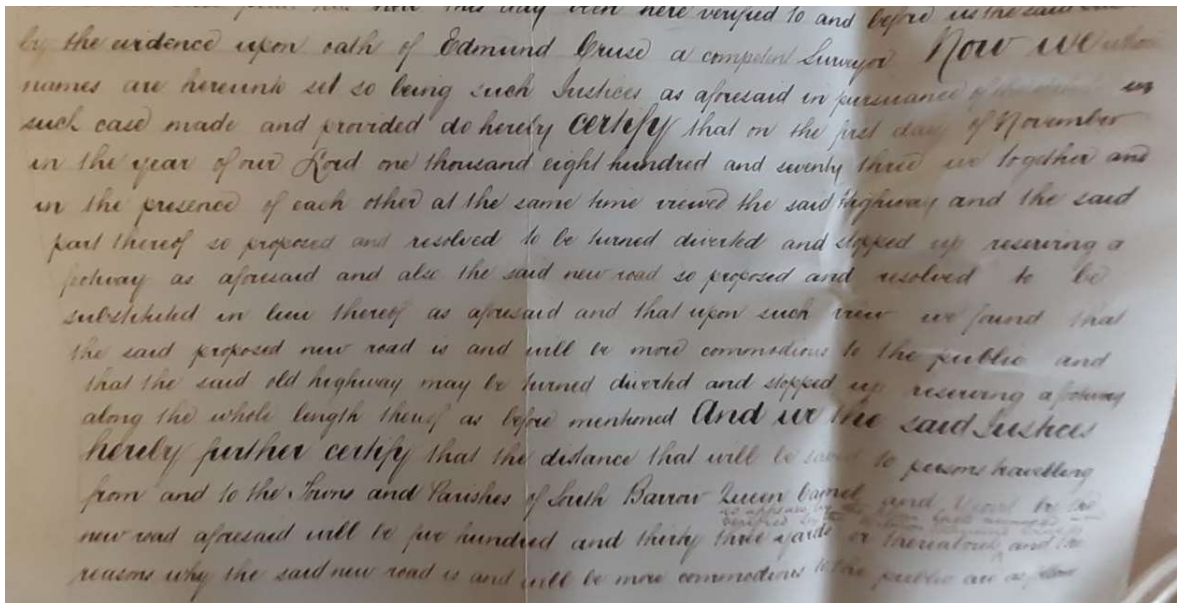 this day been here verified to and before us the said
by the evidence upon oath of Edmund Cruse a competent Surveyor Now we whose
names are hereunto set so being such Justices as aforesaid in pursuance of the in
such case made and provided do hereby certify that on the first day of November
in the year of our Lord one thousand eight hundred and seventy three we together and
in the presence of each other at the same time viewed the said highway and the said
part thereof so proposed and resolved to be turned diverted and stopped up reserving a
footway as aforesaid and also the said new road so proposed and resolved to be
substituted in lieu thereof as aforesaid and that upon such view we found that
the said proposed new road is and will be more commodious to the public and
that the said old highway may be turned diverted and stopped up reserving a footway
along the whole length thereof as before mentioned And we the said Justices
hereby further certify that the distance that will be saved to persons travelling
from and to the Towns and Parishes of South Barrow Queen Camel and by the
as appears by the
new road aforesaid will be five hundred and thirty three yards or thereabouts and the
reasons why the said new road is and will be more commodious to the public are as follows